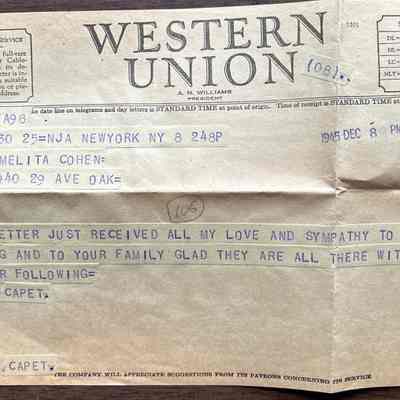 WESTERN UNION
1201
SERVICE
full-rate
Cable-
its de-
is in-
suitable
or pre-
address.
(08).
A. N. WILLIAMS
PRESIDENT
DL=
NL=
LC=
NLT=
date line on telegrams and day letters is STANDARD TIME at point of origin. Time of receipt is STANDARD TIME
A98
30 25=NJA NEWYORK NY 8 248P
1945 DEC 8 PM
MELITA COHEN=
40 29 AVE OAK=
106
ETTER JUST RECEIVED ALL MY LOVE AND SYMPATHY TO
G AND TO YOUR FAMILY GLAD THEY ARE ALL THERE WIT
R FOLLOWING=
CAPET.
CAPET.
THE COMPANY WILL APPRECIATE SUGGESTIONS FROM ITS PATRONS CONCERNING ITS SERVICE